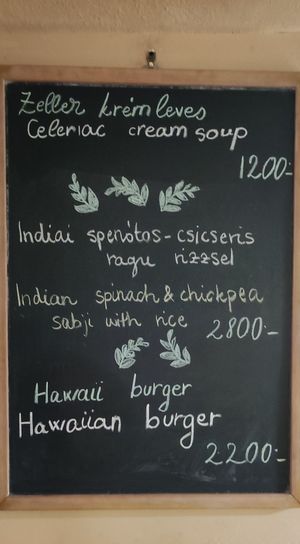 Zeller krémleves
Celeriac cream soup
1200.-
Indiai spenótos-csicseris
ragu rizzsel
Indian spinach & chickpea
sabji with rice 2800.-
Hawaii burger
Hawaiian burger
2200.-